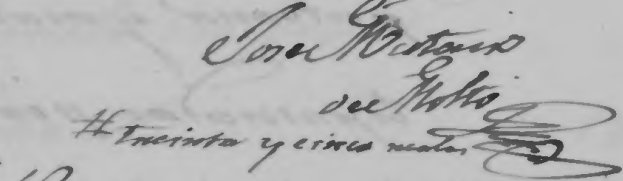 Jose Mataix
de Molto
# treinta y cinco reales